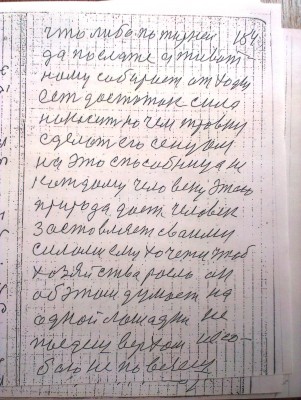 что либо по тяжел 184
да послаже и живот-
ному собирает от ходу
сет достаток сила
накосит ночем травки
сделат его сенцом
на это способниця не
каждому человеку этого
природа дает человек
заставляет своими
силами ему хочется чтоб
хозяйства росло он
об этом думает на
одной лошадки не
поедеш верхом и со-
бою не повезеш